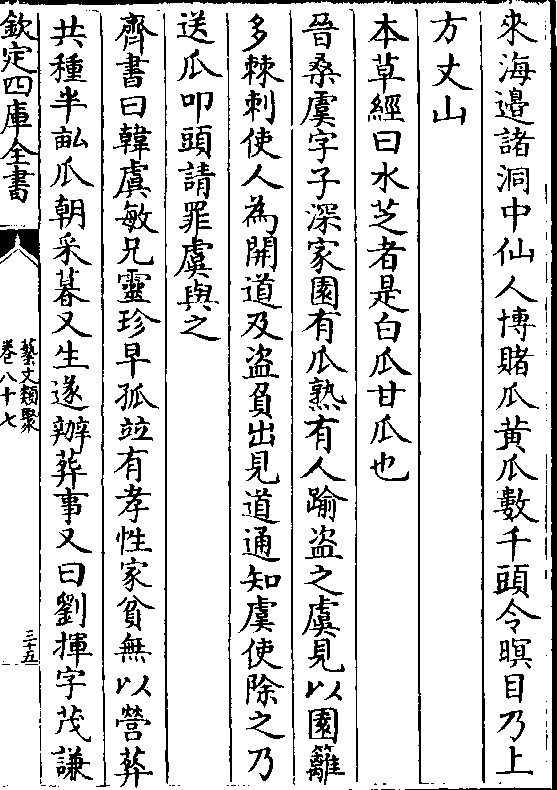 來海邉諸洞中仙人博賭瓜黃瓜數千頭令暝目乃上
方丈山
本草經曰水芝者是白瓜甘瓜也
晉桑虞字子深家園有瓜熟有人踰盗之虞見以園籬
多棘刺使人為開道及盗負出見道通知虞使除之乃
送瓜叩頭請罪虞與之
齊書曰韓虞敏兄靈珍早孤竝有孝性家貧無以營葬
共種半畝瓜朝采暮又生遂辦葬事又曰劉揮字茂謙
欽定四庫全書
藝文類聚
卷八十七
三十五